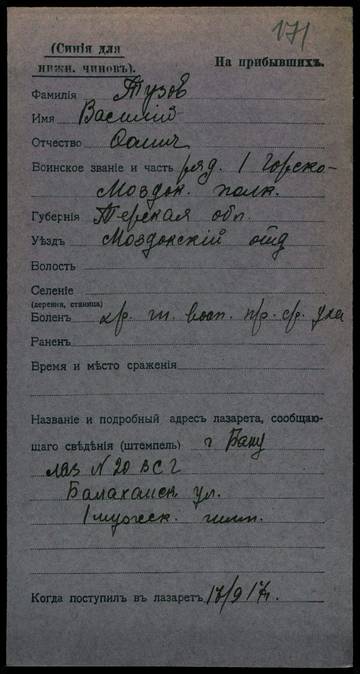 171
(Синія для
нижн. чиновъ).
На прибывшихъ.
Фамилія Тузов
Имя Василій
Отчество
Воинское званіе и часть ряд. 1 Горско-
Моздок. полк.
Губернія Терская обл.
Уѣздъ Моздокскій отд
Волость
Селеніе
(деревня, станица)
Боленъ хр. гн. восп. пр. ср. уха
Раненъ
Время и мѣсто сраженія
Названіе и подробный адресъ лазарета, сообщаю-
щаго свѣдѣнія (штемпель) г Баку
лаз N 20 ВСГ
Балаханск ул.
1 мужск. гимн.
Когда поступилъ въ лазаретъ 17/9 17г.